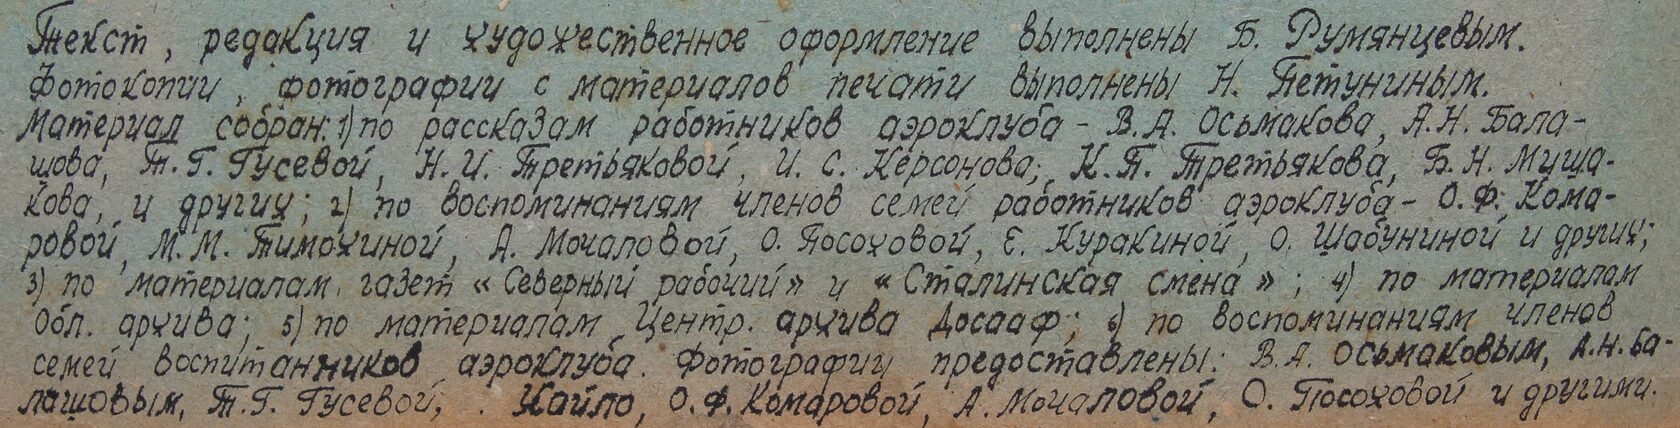 Текст, редакция и художественное оформление выполнены Б. Румянцевым.
Фотокопии, фотографии с материалов печати выполнены Н. Петуниным.
Материал собран: 1) по рассказам работников аэроклуба - В.А. Осьмакова, А.Н. Бала-
шова, Т.Г. Гусевой, Н.И. Третьяковой, И.С. Керсонова; К.П. Третьякова, Б.Н. Муша-
кова, и других; 2) по воспоминаниям членов семей работников аэроклуба - О.Ф. Кома-
ровой, М.М. Тимохиной, А. Мочаловой, О. Посоховой, Е. Куракиной, О. Шабуниной и других;
3) по материалам газет «Северный рабочий» и «Сталинская смена»; 4) по материалам
Обл. архива; 5) по материалам Центр. архива Досааф; 6) по воспоминаниям членов
семей воспитанников аэроклуба. Фотографии предоставлены: В.А. Осьмаковым, А.Н. Ба-
лашовым, Т.Г. Гусевой, . Кайло, О.Ф. Комаровой, А. Мочаловой, О. Посоховой и другими.